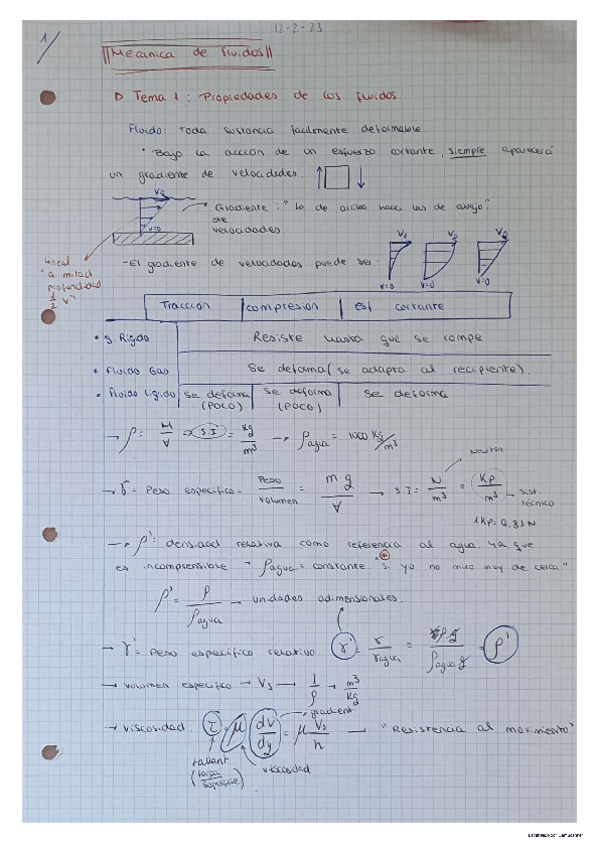 12-2-23
1/
||Mecanica de fluidos||
D Tema 1: Propiedades de los fluidos.
Fluido: Toda sustancia facilmente deformable
• Bajo la acción de un esfuerzo cortante, siempre aparecerá
un gradiente de velocidades.
V0
Gradiente: "lo de arriba hacia las de abajo".
de
velocidades
v=0
lineal
"a mitad
profundidad
1/2 v"
-El gradiente de velocidades puede ser:
V0 V0 V0
v=0 v=0 v=0
Tracción | compresion | Esf. cortante
• S. Rigido Resiste hasta que se rompe
• Fluido Gas Se deforma (se adapta al recipiente).
• Fluido Liquido Se deforma (POCO) | Se deforma (POCO) | Se deforma
→ ρ = M/V ⇒ S.I = Kg/m³ → ρagua = 1000 Kg/m³
Newton
→ γ = Peso especifico = Peso/volumen = m g/V → S.I = N/m³ o Kp/m³ → sist. técnico
1 Kp = 9.81 N
→ ρ' = densidad relativa como referencia al agua. ya que
es incompresible → ρagua = constante "si yo no miro muy de cerca"
ρ' = ρ/ρagua → unidades adimensionales
→ γ' = Peso especifico relativo γ' = γ/γagua = ρ g/ρagua g = ρ'
→ volumen especifico → Vs → 1/ρ → m³/Kg
gradient.
→ viscosidad τ = μ dv/dy = μ V0/h → "Resistencia al movimiento"
viscosidad